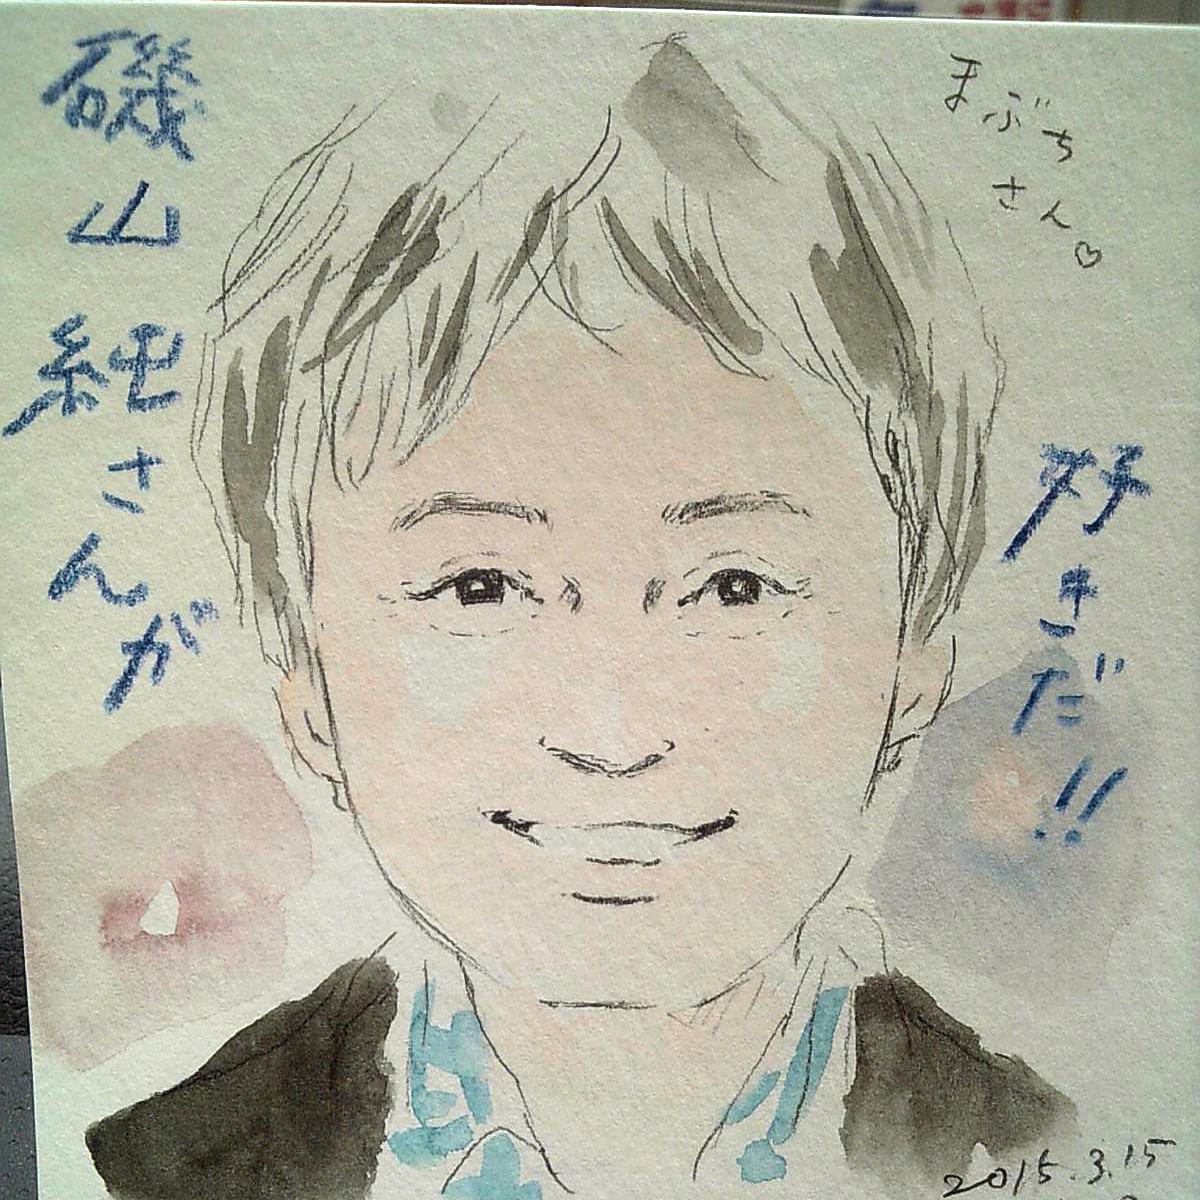 磯山純さんが
好きだ!!
まぶち
さん♡
2015.3.15